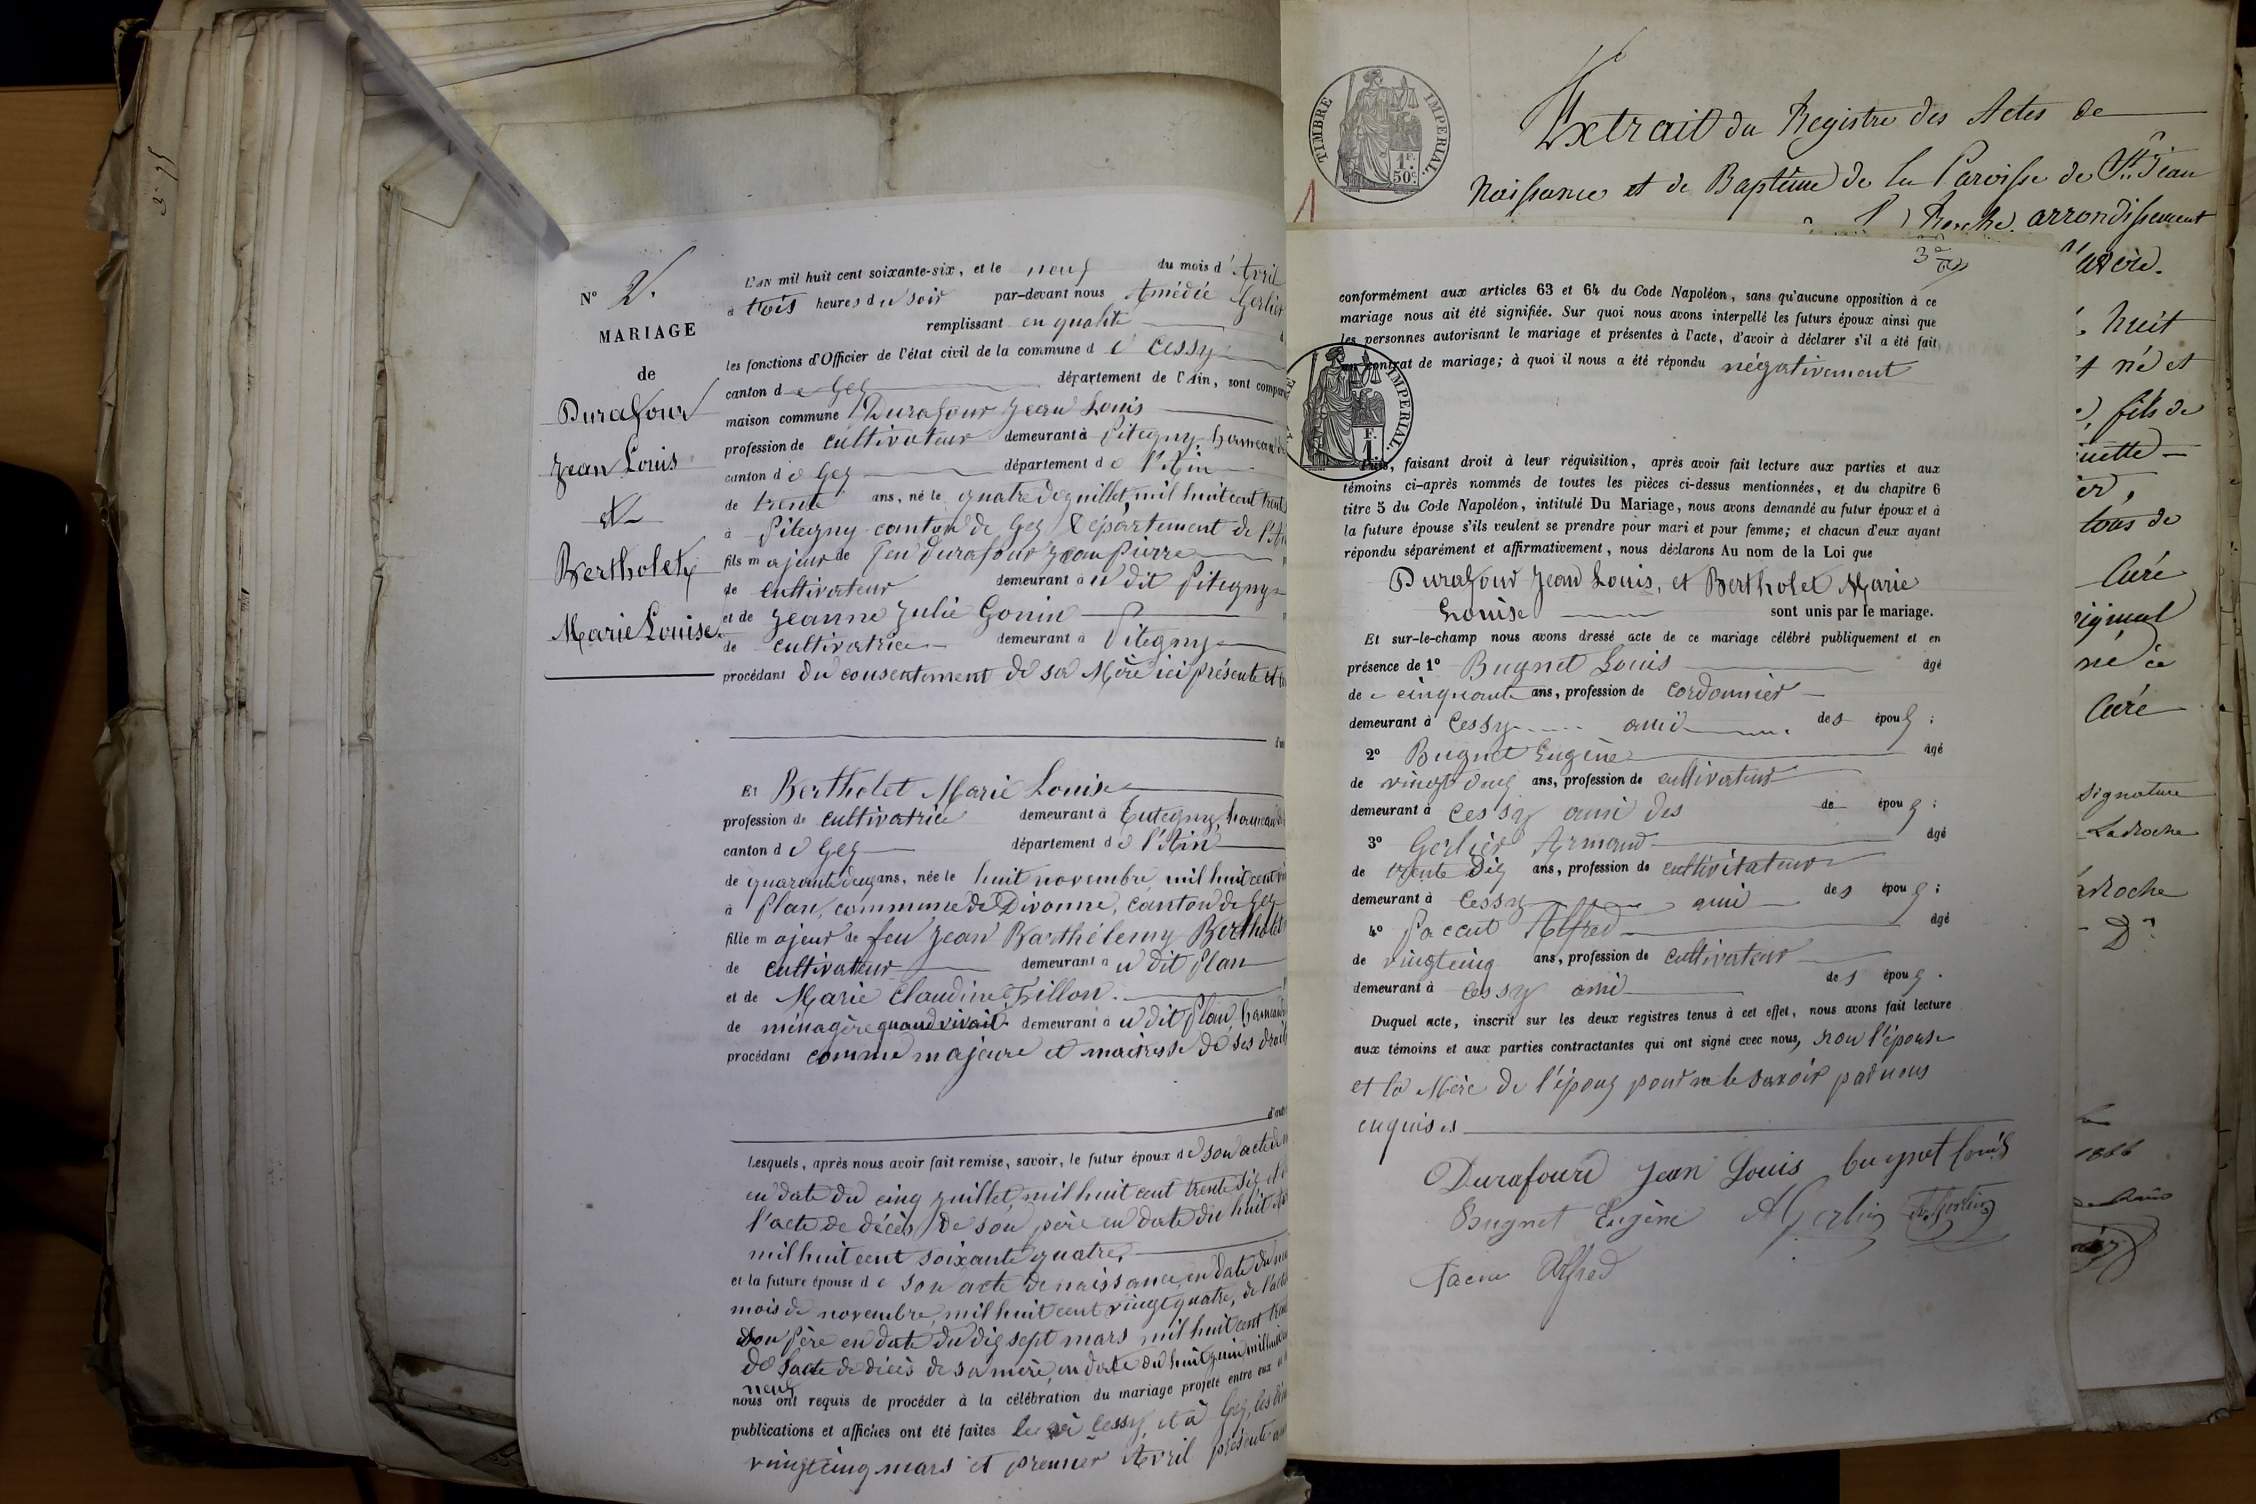 N° 2.
MARIAGE
de
Durafour
Jean Louis
&
Bertholet
Marie Louise.
L'AN mil huit cent soixante-six, et le neuf du mois d'Avril
à trois heures du soir par-devant nous Amédée Gerlier
remplissant en qualité
les fonctions d'Officier de l'état civil de la commune de Cessy
canton de Gex département de l'Ain, sont
maison commune Durafour Jean Louis
profession de cultivateur demeurant à Pitegny, hameau
canton de Gex département de l'Ain
de trente ans, né le quatre de juillet mil huit cent
à Pitegny canton de Gex département de
fils majeur de feu Durafour Jean Pierre
de cultivateur demeurant à u dit Pitegny
et de Jeanne Julie Gonin
de cultivatrice demeurant à Pitegny
procédant du consentement de sa Mère ici présente et
Et Bertholet Marie Louise
profession de cultivatrice demeurant à Tutegny, hameau
canton de Gex département de l'Ain
de quarante deux ans, née le huit novembre mil huit cent
à Plan, commune de Divonne, canton de Gex
fille majeur de feu Jean Barthélemy Bertholet
de cultivateur demeurant à u dit Plan
et de Marie Claudine Fillon.
de ménagère quand vivait demeurant à u dit Plan
procédant comme majeure et maitresse de ses
Lesquels, après nous avoir fait remise, savoir, le futur époux de son acte de
en date du cinq juillet mil huit cent trente six et
l'acte de décès de son père en date du huit
mil huit cent soixante quatre,
et la future épouse de son acte de naissance, en date du
mois de novembre, mil huit cent vingt quatre, de
son Père en date du dix sept mars mil huit cent
de l'acte de décès de sa mère, en date du huit juin
neuf
nous ont requis de procéder à la célébration du mariage projeté entre eux
publications et affiches ont été faites à Cessy, et à Gex, les
vingt cinq mars et premier Avril présente
TIMBRE IMPERIAL.
1F.
50c.
1
Extrait du Registre des Actes de
Naissance et de Baptême de la Paroisse de St. Jean
Roche. arrondissement
huit
né et
fils de
Curé
Curé
signature
LaRoche
1866
conformément aux articles 63 et 64 du Code Napoléon, sans qu'aucune opposition à ce
mariage nous ait été signifiée. Sur quoi nous avons interpellé les futurs époux ainsi que
les personnes autorisant le mariage et présentes à l'acte, d'avoir à déclarer s'il a été fait
contrat de mariage; à quoi il nous a été répondu négativement
IMPERIAL.
F.
1
Puis, faisant droit à leur réquisition, après avoir fait lecture aux parties et aux
témoins ci-après nommés de toutes les pièces ci-dessus mentionnées, et du chapitre 6
titre 5 du Code Napoléon, intitulé Du Mariage, nous avons demandé au futur époux et à
la future épouse s'ils veulent se prendre pour mari et pour femme; et chacun d'eux ayant
répondu séparément et affirmativement, nous déclarons Au nom de la Loi que
Durafour Jean Louis, et Bertholet Marie
Louise sont unis par le mariage.
Et sur-le-champ nous avons dressé acte de ce mariage célébré publiquement et en
présence de 1° Bugnet Louis âgé
de cinquante ans, profession de cordonnier
demeurant à Cessy ami des époux;
2° Bugnet Eugène âgé
de vingt deux ans, profession de cultivateur
demeurant à Cessy ami des de époux;
3° Gerlier Armand âgé
de trente dix ans, profession de cultivitateur
demeurant à Cessy ami des époux;
4° Paccut Alfred âgé
de vingt cinq ans, profession de cultivateur
demeurant à Cessy ami des époux.
Duquel acte, inscrit sur les deux registres tenus à cet effet, nous avons fait lecture
aux témoins et aux parties contractantes qui ont signé avec nous, non l'épouse
et la Mère de l'époux pour ne le savoir par nous
enquises
Durafour Jean Louis bugnet Louis
Bugnet Eugène A Gerlier
Alfred